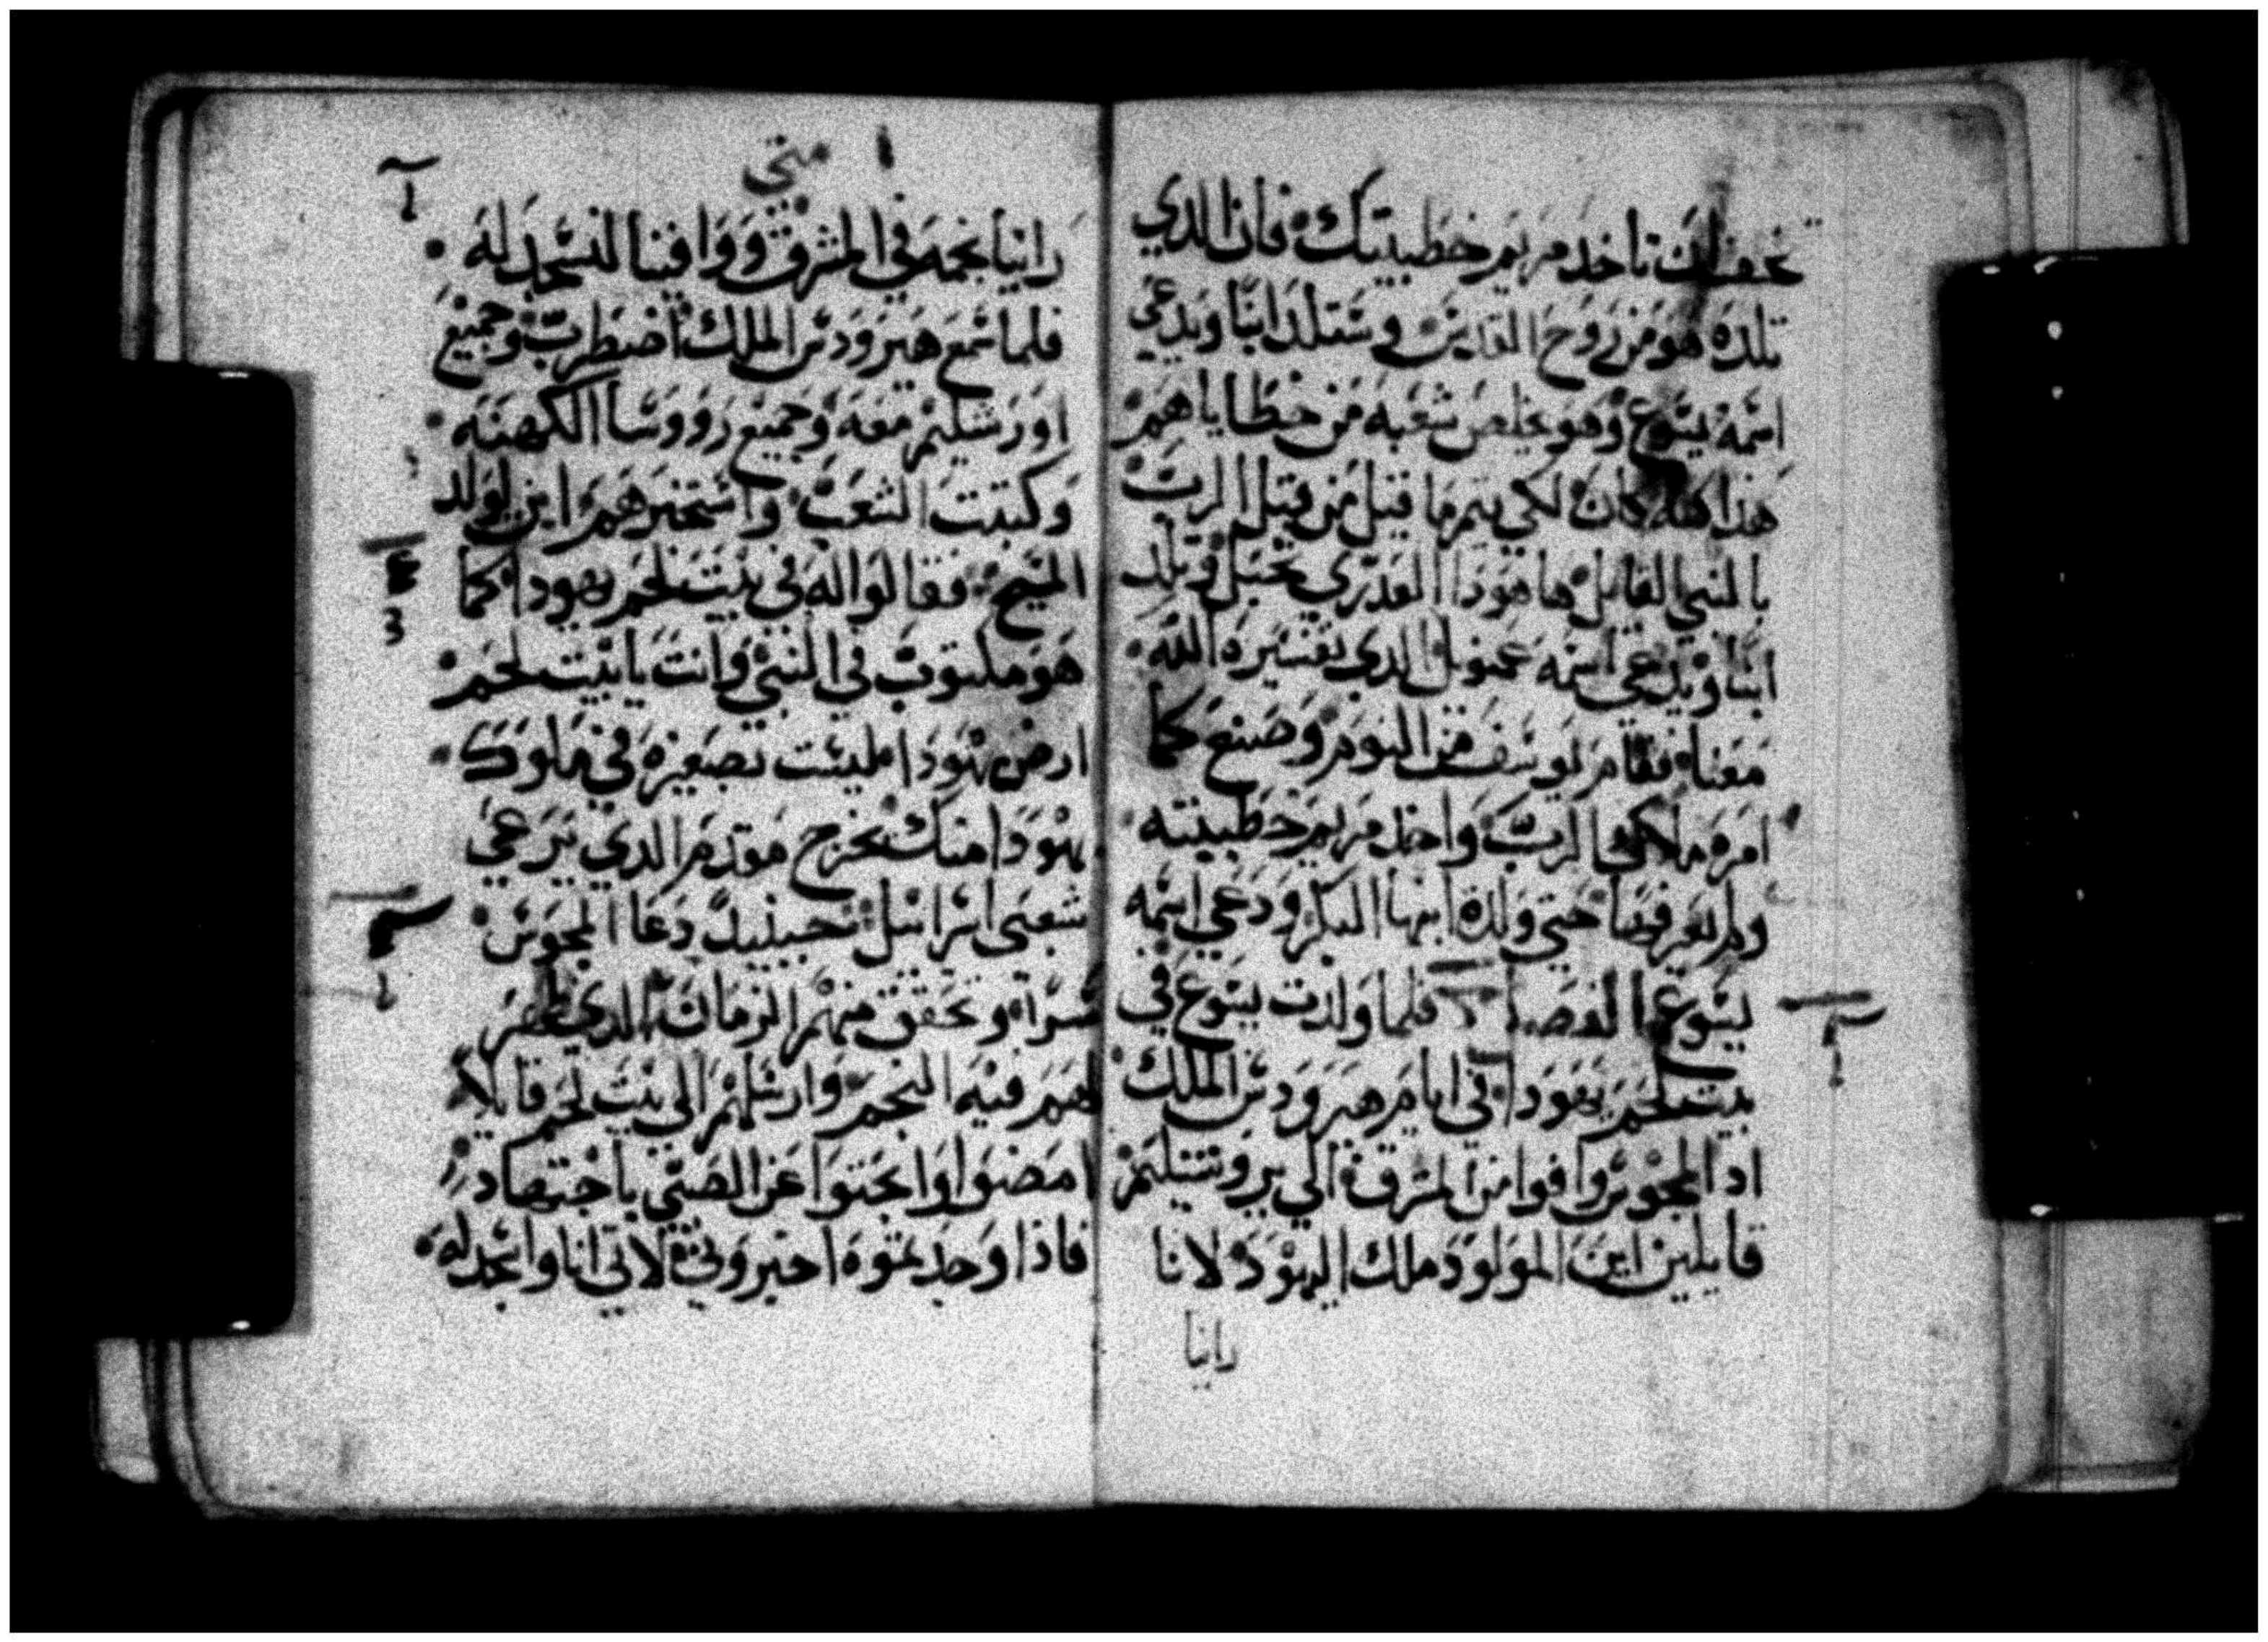 تخف ان تاخد مريم خطيبتك فان الدي
تلده هو من روح القدس وستلد ابنا ويدعي
اسمه يسوع وهو يخلص شعبه من خطاياهم
هذا كله كان لكي يتم ما قيل من قبل الرب
بالنبي القايل ها هودا العدري تحبل وتلد
ابنا ويدعي اسمه عمنويل الدي تفسيره الله
معنا فقام يوسف من النوم وصنع كما
امره ملاك الرب واخد مريم خطيبته
ولم يعرفها حتي ولدة ابنها البكر ودعي اسمه
يسوع الفصل فلما ولدت يسوع في
بيت لحم يهودا في ايام هيرودس الملك
ادا المجوس وافوا من المشرق الي يروشليم
قايلين اين المولود ملك اليهود لانا
راينا
متي
راينا نجمه في المشرق ووافينا لنسجد له
فلما سمع هيرودس الملك اضطرب وجميع
اورشليم معه وجميع رووسا الكهنه
وكتبت الشعب واستخبرهم اين يولد
المسيح فقالوا له في بيت لحم يهودا كما
هو مكتوب في النبي وانت يا بيت لحم
ارض يهودا ليست بصغيره في ملوك
يهودا منك يخرج مقدم الدي يرعي
شعبي اسراييل حينيد دعا المجوس
سرا وتحقق منهم الزمان الدي ظهر
لهم فيه النجم وارسلهم الي بيت لحم قايلا
امضوا وابحتوا عن الصبي باجتهاد
فاذا وجدتموه اخبروني لاتي انا واسجد له